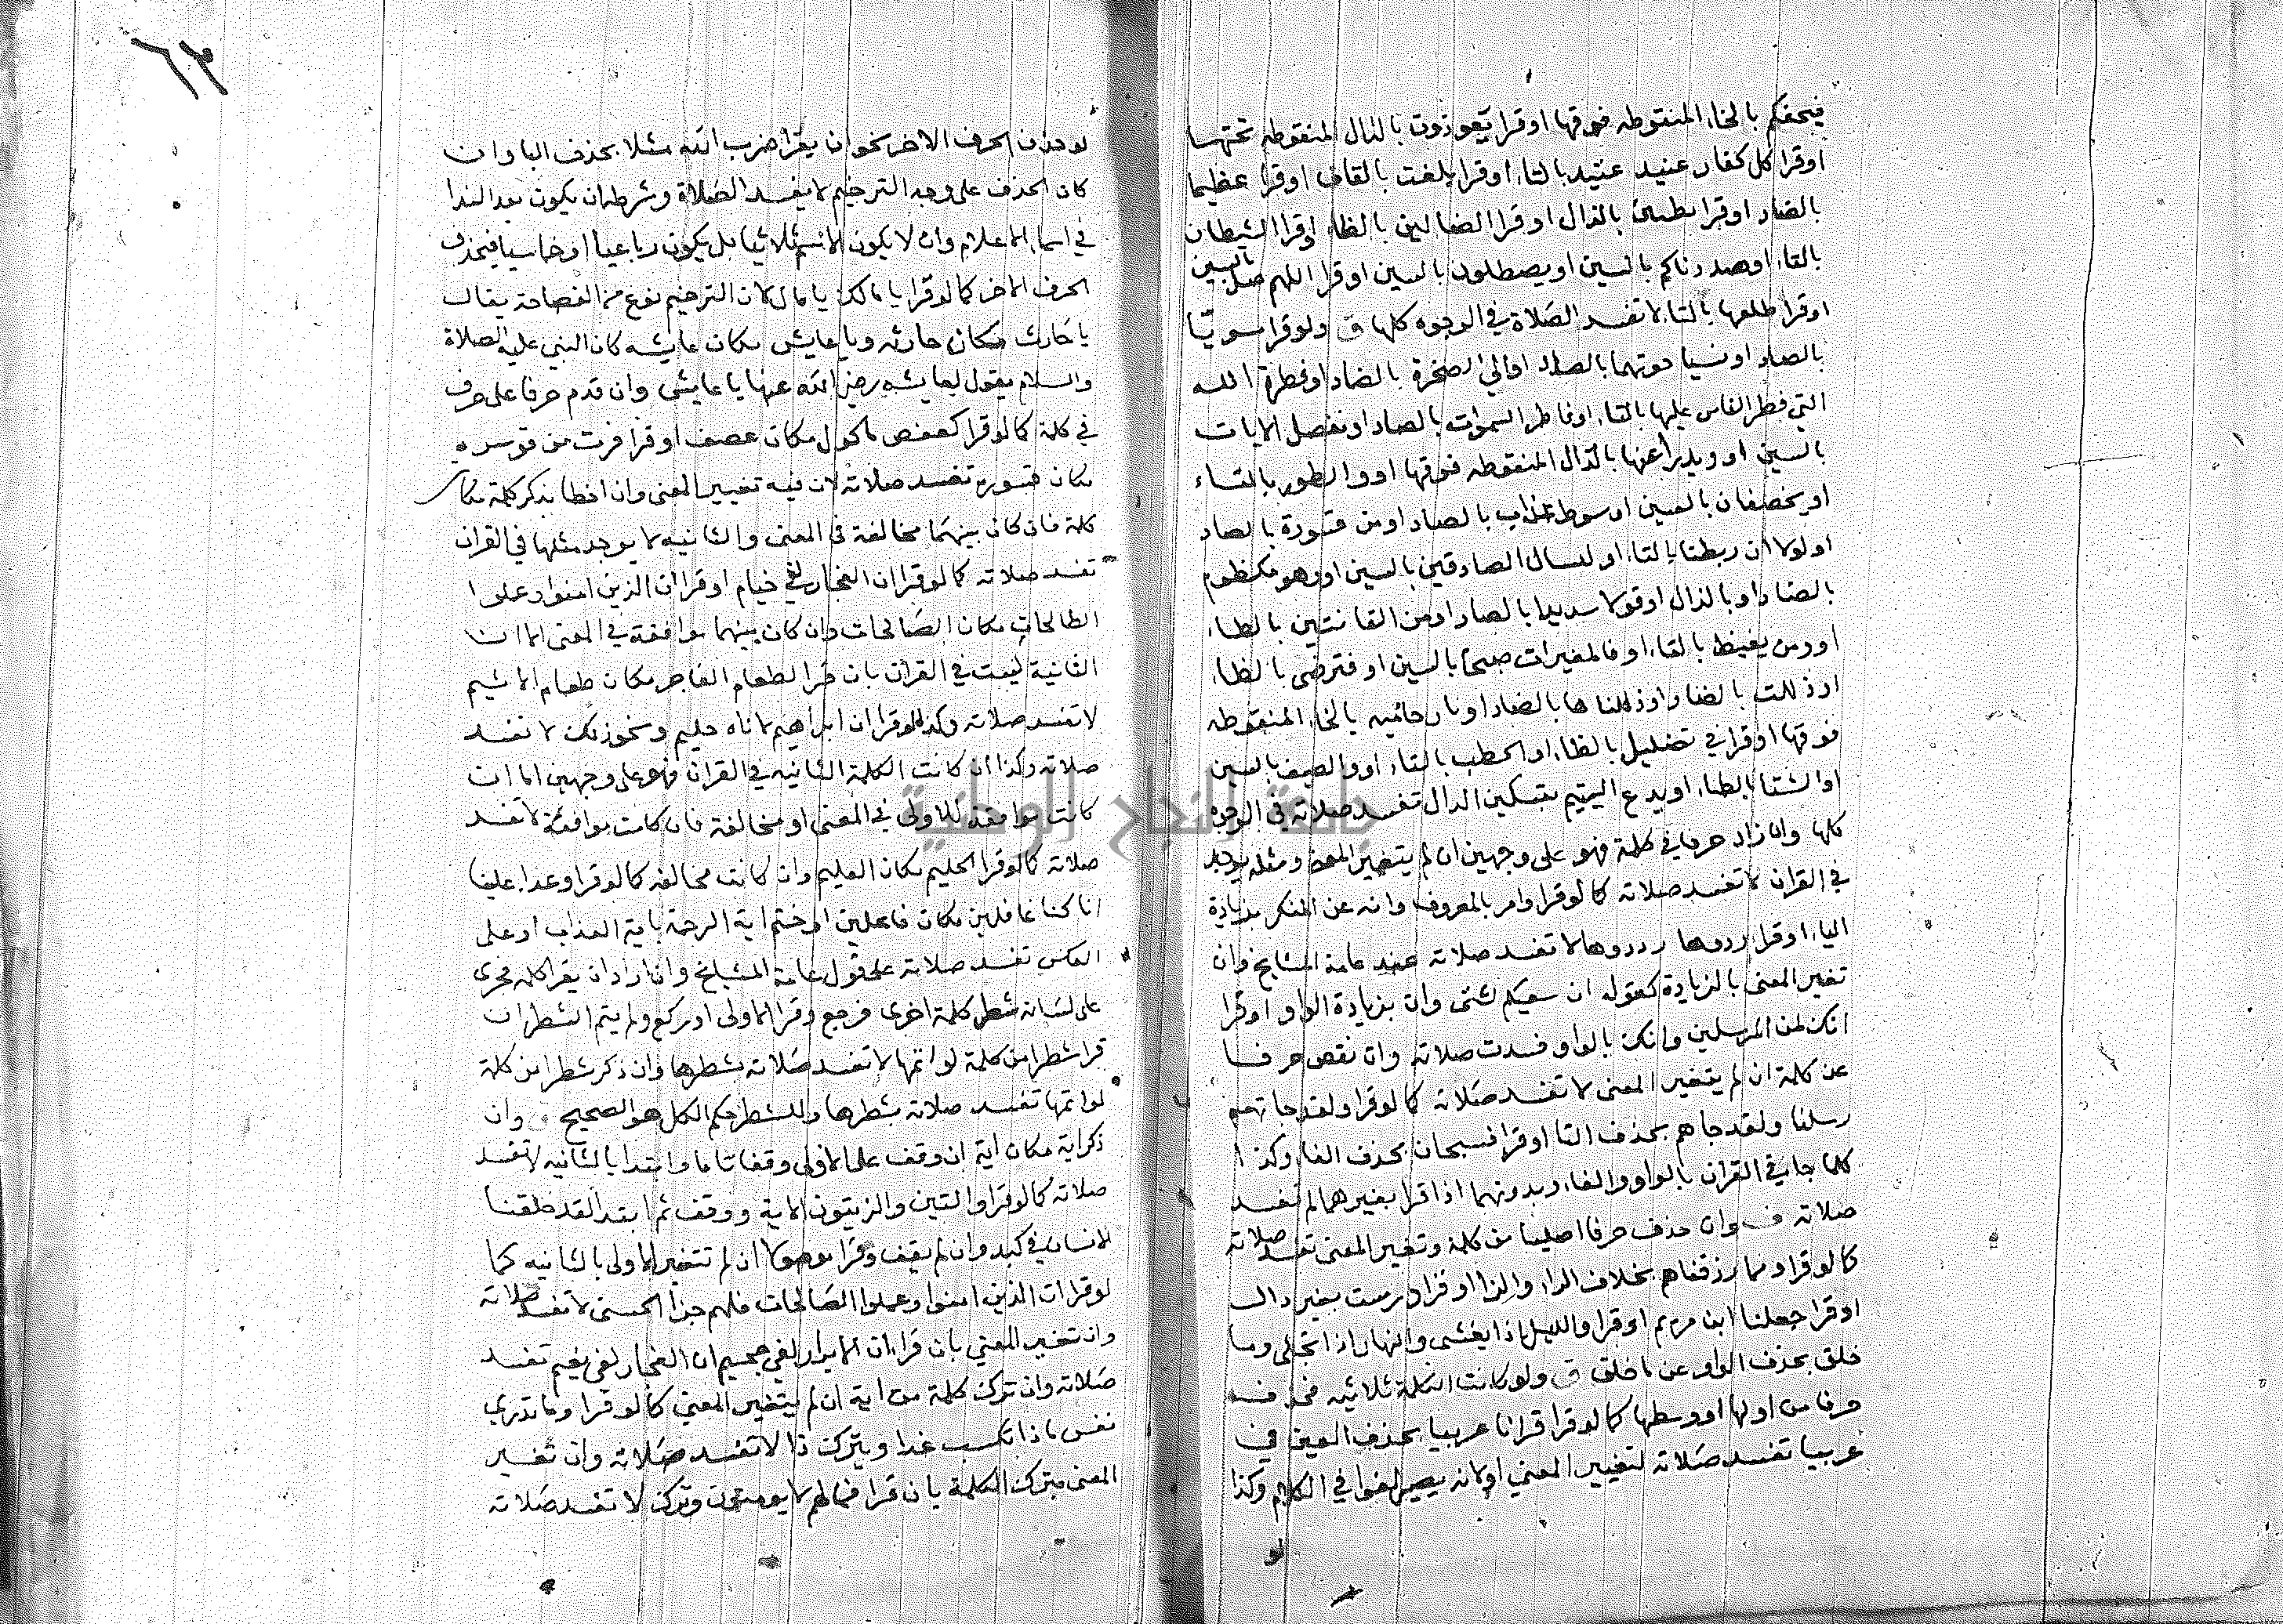 فيحفكم بالخاء المنقوطه فوقها او قرا يعوذون بالدال المنقوطه تحتها
او قرا كل كفار عنيد عتيد بالتاء او قرا بلغت بالقاف او قرا عظيما
بالضاد او قرا بطنين بالذال او قرا الضالين بالظاء او قرا الشيطان
بالتاء او صددناكم بالسين او يصطلون بالسين او قرا اللهم صل بالسين
او قرا طلعها بالتاء لا تفسد الصلاة في الوجوه كلها ق ولو قرا سويا
بالصاد او نسيا حوتهما بالصاد او الي الصخرة بالضاد او فطرة الله
التي فطر الناس عليها بالتاء او فاطر السموات بالصاد او نفصل الايات
بالسين او ويدرأ عنها بالذال المنقوطه فوقها او والطور بالتاء
او يخصفان بالسين او سوط عذاب بالصاد او من قسورة بالصاد
او لولا ان ربطنا بالتاء او ليسال الصادقين بالسين او وهو مكظوم
بالضاد او بالذال او قولا سديدا بالصاد او من القانتين بالطاء
او ومن يغيظ بالتاء او فالمغيرات صبحا بالسين او فترضى بالظاء
او ذللت بالضاد او ذللناها بالضاد او نار حاميه بالخاء المنقوطه
فوقها او قرا في تضليل بالظاء او الحطب بالتاء او والصيف بالسين
او الشتا بالطاء او يدع اليتيم بتسكين الدال تفسد صلاته في الوجوه
كلها وان زاد حرفا في كلمة فهو على وجهين ان لم يتغير المعنى ومثله يوجد
في القران لا تفسد صلاته كما لو قرا وامر بالمعروف وانه عن المنكر بزيادة
الياء او قرا ردوها رددوها لا تفسد صلاته عند عامة المشايخ وان
تغير المعنى بالزيادة كقوله ان سعيكم لشتى وان بزيادة الواو او قرا
انك لمن المرسلين وانك بالواو فسدت صلاته وان نقص حرفا
عن كلمة ان لم يتغير المعنى لا تفسد صلاته كما لو قرا ولقد جاتهم
رسلنا ولقد جاهم بحذف التا او قرا فسبحان بحذف الفاء وكذا
كلما جا في القران بالواو والفاء وبدونهما اذا قرا بغيرهما لم تفسد
صلاته ف وان حذف حرفا اصليا من كلمة وتغير المعنى تفسد صلاته
كما لو قرا ومما رزقناهم بخلاف الراء والزا او قرا درست بغير دال
او قرا جعلنا ابن مريم او قرا والليل اذا يغشى والنهار اذا تجلى وما
خلق بحذف الواو عن ما خلق ق ولو كانت الكلمة ثلاثيه فحذف
حرفا من اولها او وسطها كما لو قرا قرانا عربيا بحذف العين في
عربيا تفسد صلاته لتغيير المعنى او لانه يصير لغوا في الكلام وكذا
لو
٦٣
لو حذف الحرف الاخر نحو ان يقرا ضرب الله مثلا بحذف البا وان
كان الحذف على وجه الترخيم لا يفسد الصلاة وشرطه ان يكون بعد الندا
في اسماء الاعلام وان لا يكون الاسم ثلاثيا بل يكون رباعيا او خماسيا فيحذف
الحرف الاخر كما لو قرا يا مالك يا مال لان الترخيم نوع من الفصاحة يقال
يا حارث مكان حارثه ويا عايش مكان عايشه كان النبي عليه الصلاة
والسلام يقول لعايشه رضي الله عنها يا عايش وان قدم حرفا على حرف
في كلمة كما لو قرا كعفص ماكول مكان عصف او قرا فرت من قوسره
مكان قسورة تفسد صلاته لان فيه تغيير المعنى وان اخطا بذكر كلمة مكان
كلمة فان كان بينهما مخالفة في المعنى والثانيه لا يوجد مثلها في القران
تفسد صلاته كما لو قرا ان الفجار لفي خيام او قرا ان الذين امنوا وعملوا
الطالحات مكان الصالحات وان كان بينهما موافقة في المعنى الا ان
الثانية ليست في القران بان قرا طعام الفاجر مكان طعام الاثيم
لا تفسد صلاته وكذا لو قرا ان ابراهيم لاناه حليم ونحو ذلك لا تفسد
صلاته وكذا ان كانت الكلمة الثانيه في القران فهو على وجهين اما ان
كانت موافقة للاولى في المعنى او مخالفة فان كانت موافقة لا تفسد
صلاته كما لو قرا الحليم مكان العليم وان كانت مخالفه كما لو قرا وعدا علينا
انا كنا غافلين مكان فاعلين او ختم اية الرحمة باية العذاب او على
العكس تفسد صلاته على قول عامة المشايخ وان اراد ان يقرا كلمه فجرى
على لسانه شطر كلمة اخرى فرجع وقرا الاولى او ركع ولم يتم الشطر ان
قرا شطرا من كلمة لو اتمها لا تفسد صلاته بشطرها وان ذكر شطرا من كلمة
لو اتمها تفسد صلاته بشطرها وللشطر حكم الكل هو الصحيح وان
ذكر اية مكان اية ان وقف على الاولى وقفا تاما وابتدا بالثانيه لا تفسد
صلاته كما لو قرا والتين والزيتون الاية ووقف ثم ابتدا لقد خلقنا
الانسان في كبد وان لم يقف وقرا موصولا ان لم تتغير الاولى بالثانيه كما
لو قرا ان الذين امنوا وعملوا الصالحات فلهم جزا الحسنى لا تفسد صلاته
وان تغير المعني بان قرا ان الابرار لفي جحيم ان الفجار لفي نعيم تفسد
صلاته وان ترك كلمة من اية ان لم يتغير المعني كما لو قرا وما تدري
نفس ماذا تكسب غدا ويترك ذا لا تفسد صلاته وان تغير
المعنى بترك الكلمة بان قرا فما لهم لا يومنون وترك لا تفسد صلاته
جامعة النجاح الوطنية